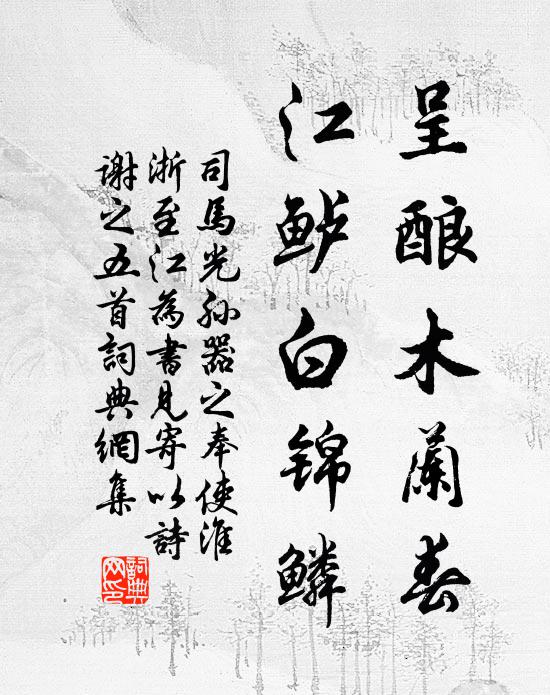 呈酿木蘭春
江鲈白锦鳞
司馬光孙器之奉使淮
浙至江為書見寄以詩
謝之五首詞典網集
詞典网印